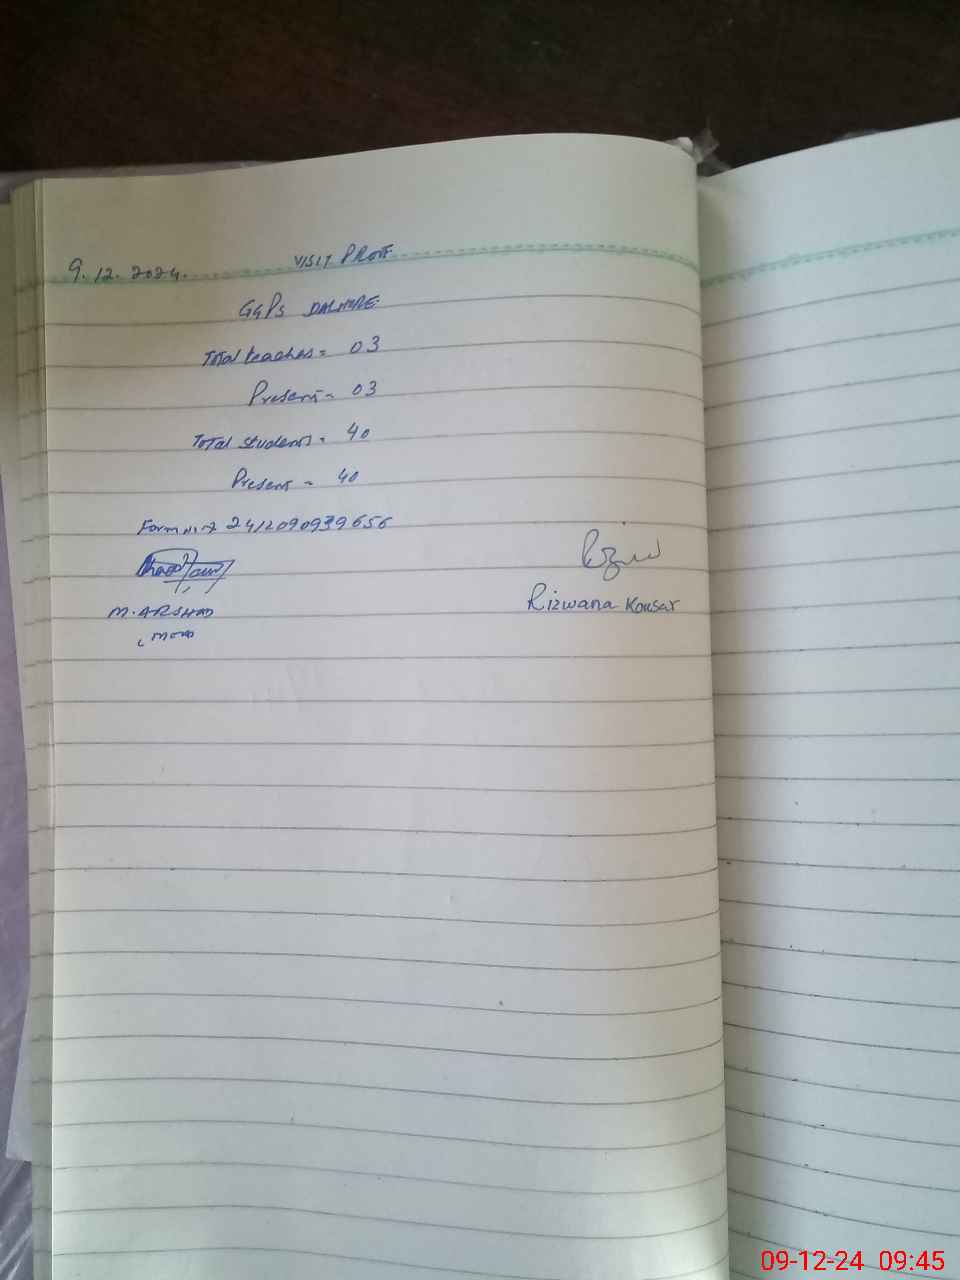 9.12.2024. VISIT PROOF
GGPS
Total teaches = 03
Present = 03
Total students = 40
Present = 40
Form 2412090939656
M. ARSHAD
Rizwana Kousar
09-12-24 09:45